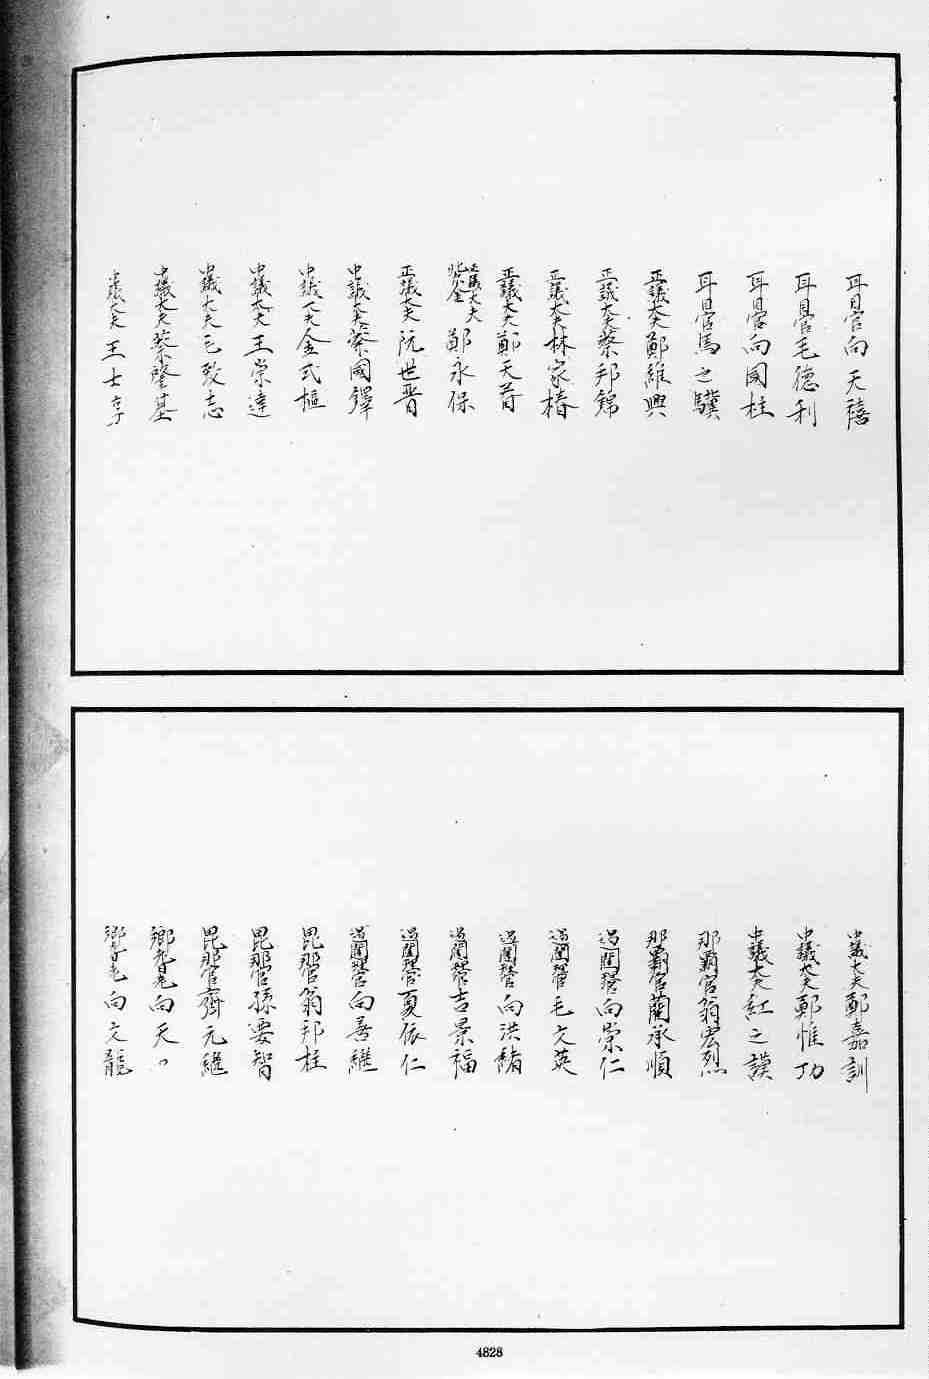 耳目官向天禧
耳目官毛德利
耳目官向國柱
耳目官馬之驥
正議大夫鄭維興
正議大夫蔡邦錦
正議大夫林家椿
正議大夫鄭天
正議大夫
紫金鄭永保
正議大夫阮世晉
中議大夫蔡國鐸
中議大夫金式樞
中議大夫王崇達
中議大夫毛致志
中議大夫蔡肇基
中議大夫王士
中議大夫鄭嘉訓
中議大夫鄭惟功
中議大夫紅之謨
那霸官翁宏烈
那霸官蘭承順
過闥理官向崇仁
過闥理官毛文英
過闥理官向洪緒
過闥理官吉景福
過闥理官夏依仁
過闥理官向善繼
毘那官翁邦柱
毘那官孫要智
毘那官齊元繼
鄉耆老向天
鄉耆老向文龍
4828